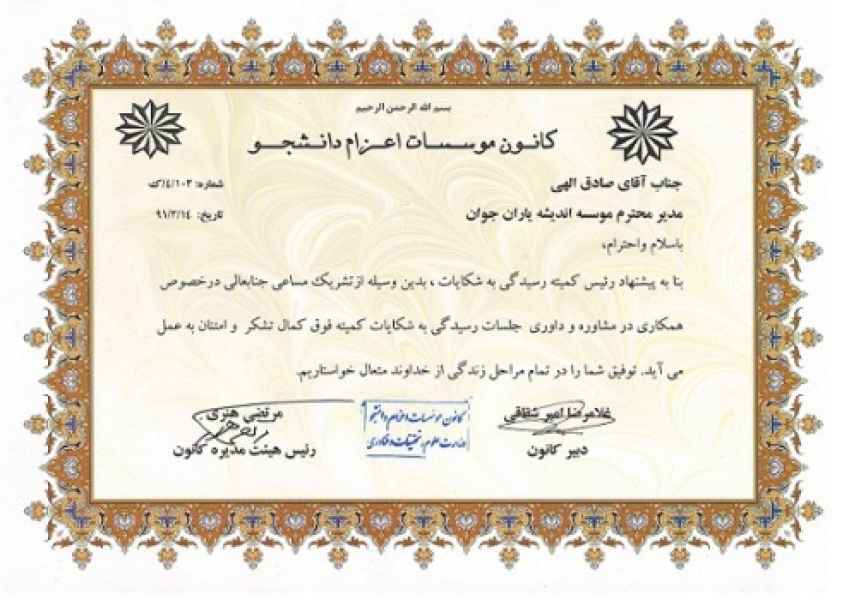 بسم الله الرحمن الرحیم
کانون موسسات اعزام دانشجو
جناب آقای صادق الهی
شماره: ۴/۱۰۳/ک
مدیر محترم موسسه اندیشه یاران جوان
تاریخ: ۹۱/۳/۱۴
باسلام واحترام،
بنا به پیشنهاد رئیس کمیته رسیدگی به شکایات ، بدین وسیله ازتشریک مساعی جنابعالی درخصوص
همکاری در مشاوره و داوری جلسات رسیدگی به شکایات کمیته فوق کمال تشکر و امتنان به عمل
می آید. توفیق شما را در تمام مراحل زندگی از خداوند متعال خواستاریم.
غلامرضا امیر شقاقی
دبیر کانون
کانون موسسات اعزام دانشجو
وزارت علوم، تحقیقات و فناوری
مرتضی هنری
رئیس هیئت مدیره کانون